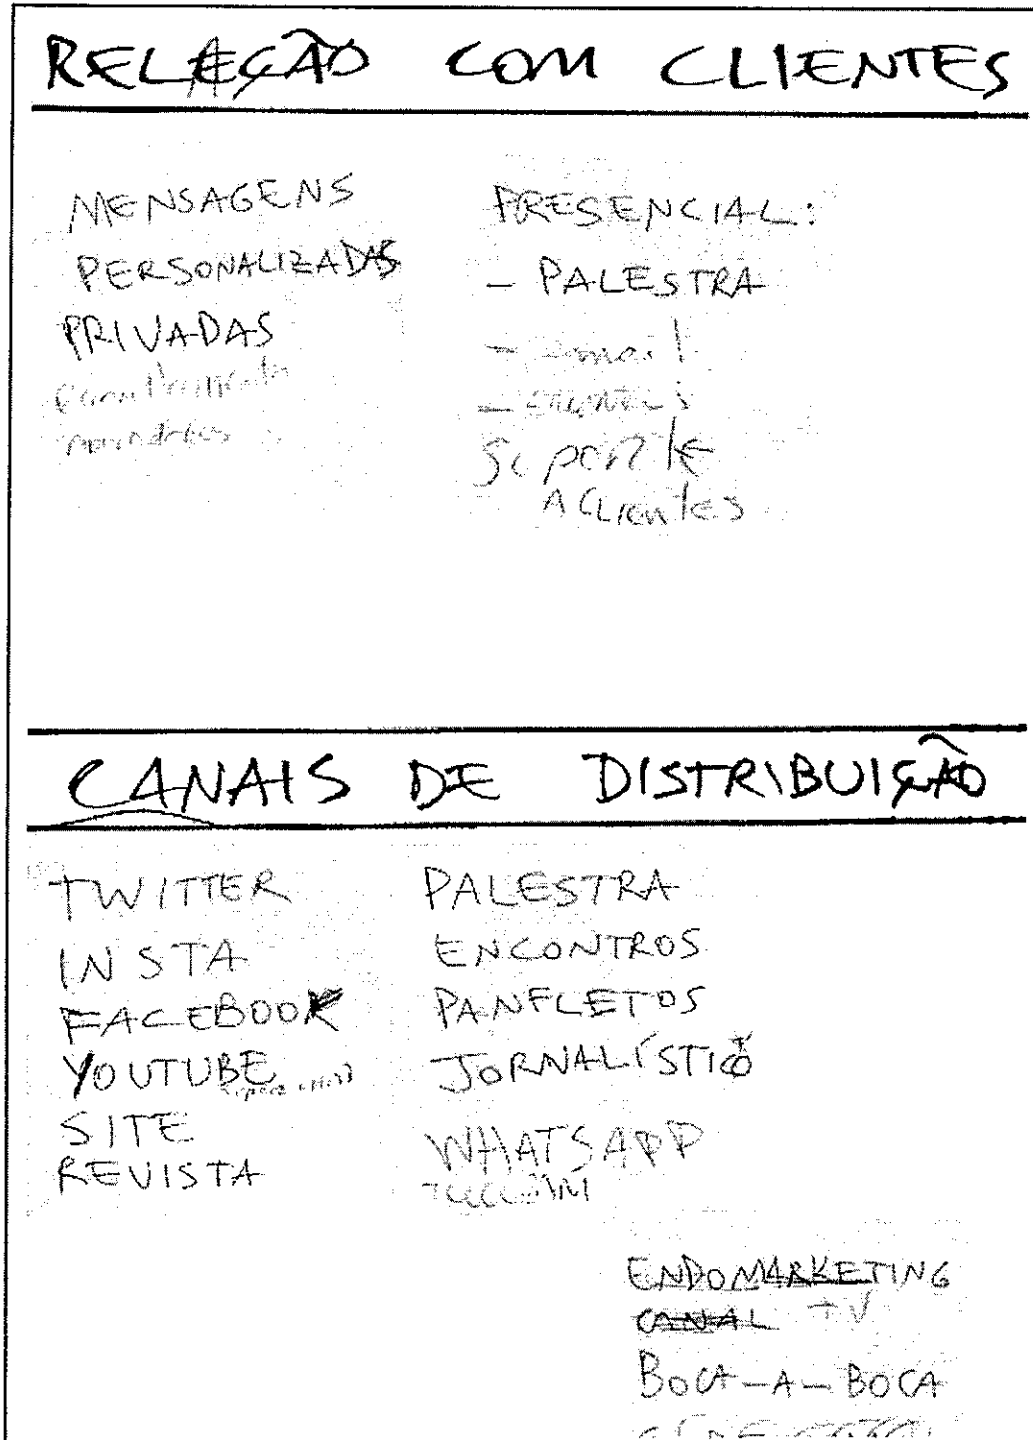 RELAÇÃO COM CLIENTES
MENSAGENS
PERSONALIZADAS
PRIVADAS
PRESENCIAL:
- PALESTRA
- email
-
Suporte
A CLIENTES
CANAIS DE DISTRIBUIÇÃO
TWITTER
INSTA
FACEBOOK
YOUTUBE
SITE
REVISTA
PALESTRA
ENCONTROS
PANFLETOS
JORNALÍSTICO
WHATSAPP
ENDOMARKETING
CANAL TV
BOCA-A-BOCA